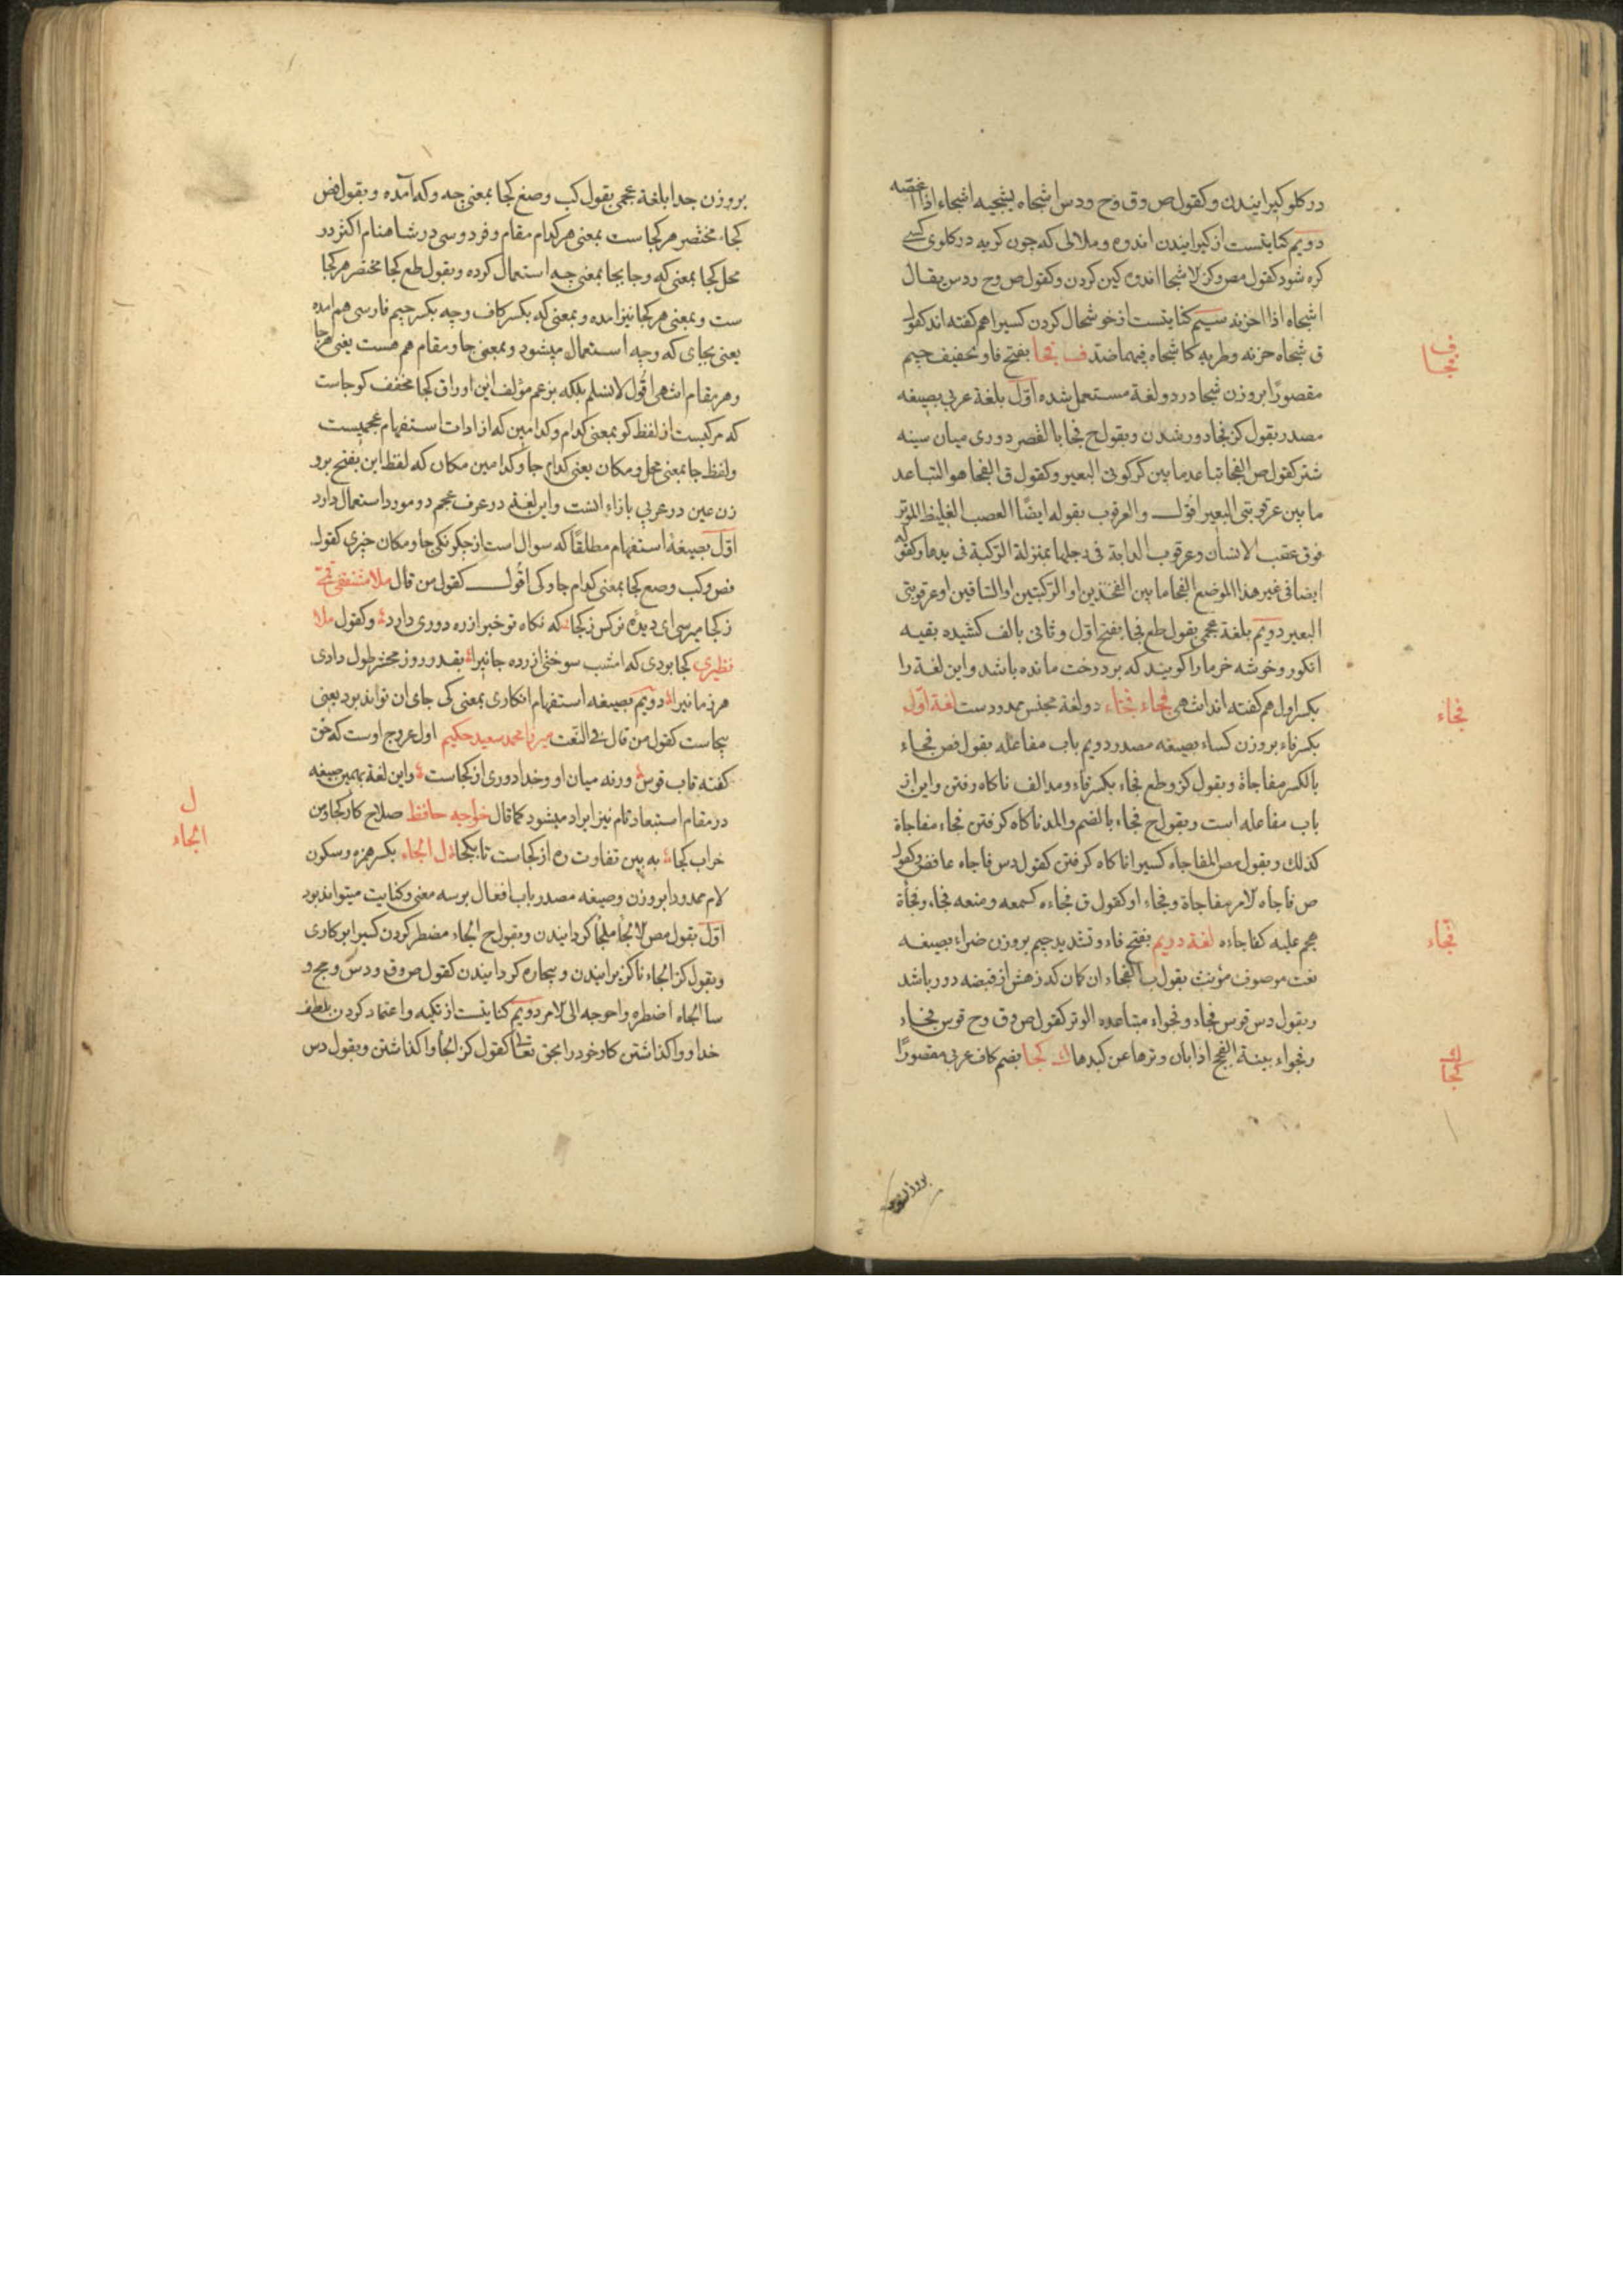 در كلو كیرانیدن و كقول ص و ق و ح و دس اشجاه یشجیه اشجاء اذا غصّه
دویم كنایتست از كیرانیدن اندوه و ملالی كه چون كریه در كلوی كسے
كره شود كقول مص و كز لا شجا اندوه كین كردن و كقول ص و ح و دس یقال
اشجاه اذا احزنه سییم كنایتست از خوشحال كردن كسیرا هم كفته اند كقول
ق شجاه حزنه و طربه كاشجاه فیهما ضدّ ف فجا بفتح فا و تخفیف جیم
ف
فجا
مقصورًا بروزن شجا در دو لغة مستعمل شده اوّل بلغة عربی بصیغه
مصدر بقول كز فجا دور شدن و بقول ح فجا بالقصر دوری میان سینه
شتر كقول ص الفجا تباعد ما بین عركوبی البعیر و كقول ق الفجا هو التباعد
ما بین عرقوبتی البعیر اقول والعرقوب بقوله ایضًا العصب الغلیظ الموتر
فوق عقب الانسان و عرقوب الدابة فی رجلها بمنزلة الرّكبة فی یدها و كقوله
ایضا فی غیر هذا الموضع الفجا ما بین الفخذین او الرّكبتین او السّاقین او عرقوبتی
البعیر دویم بلغة عجمی بقول طع فجا بفتح اوّل و ثانی بالف كشیده بقیه
انكور و خوشه خرما را كویند كه بر درخت مانده باشد و این لغة را
بكسر اول هم كفته اند انتهی فجاء فجّاء دو لغة مجنس ممدودست لغة اوّل
فجاء
بكسر فاء بروزن كساء بصیغه مصدر دویم باب مفاعله بقول فص فجاء
بالكسر مفاجاة و بقول كز و طع فجاء بكسر فاء و مد الف ناكاه رفتن و این از
باب مفاعله است و بقول ح فجاء بالضم والمد ناكاه كرفتن فجاء مفاجاة
كذلك و بقول مص المفاجاه كسیرا ناكاه كرفتن كقول دس فاجاه عافض و كقول
ص فاجاه الامر مفاجاة و فجاء او كقول ق فجاءه كسمعه و منعه فجاء و فجأة
هجم علیه كفاجاءه لغة دویم بفتح فاء و تشدید جیم بروزن ضراء بصیغه
فجّاء
نعت موصوف مؤنث بقول ب الفجاء ان كمان كه زهش از قبضه دور باشد
و بقول دس قوس فجاء و فجواء متباعده الوتر كقول ص و ق و ح قوس فجاء
و فجواء بینة الفجج اذا بان وترها عن كبدها ك كجا بضم كاف عربی مقصورًا
ك
كجا
بروزن
بروزن جدا بلغة عجمی بقول كب و صغ كجا بمعنی چه و كه آمده و بقول فص
كجا مختصر هر كجاست بمعنی هر كدام مقام و فردوسی در شاهنام اكثر در
محل كجا بمعنی كه و جا بجا بمعنی چه استعمال كرده و بقول طع كجا مختصر هر كجا
ست و بمعنی هر كجا نیز امده و بمعنی كه بكسر كاف و چه بكسر جیم فارسی هم امده
یعنی بجای كه و چه استعمال میشود و بمعنی جا و مقام هم هست یعنی هر جا
و هر مقام انتهی اقول لا نسلم بلكه بزعم مؤلف این اوراق كجا مخفف كو جاست
كه مركبست از لفظ كو بمعنی كدام و كدامین كه از ادات استفهام عجمیست
و لفظ جا بمعنی محل و مكان یعنی كدام جا و كدامین مكان كه لفظ این بفتح برو
زن عین در عربی بازاء انست و این لغة در عرف عجم دو مورد استعمال دارد
اوّل بصیغه استفهام مطلقًا كه سوال است از چكونكی جا و مكان چیزی كقول
فص و كب و صع كجا بمعنی كدام جا و كی اقول كقول من قال ملا شفقی قمی
ز كجا میرسی ای دیده نركس ز كجا كه نكاه تو خبر از ره دوری دارد و كقول ملا
نظیری كجا بودی كه امشب سوختی ازرده جانیرا بقدر روز محشر طول دادی
هر زمانیرا دویم بصیغه استفهام انكاری بمعنی كی جای ان تواند بود یعنی
بیجاست كقول من قال فی النّعت میرزا محمد سعید حكیم اول عروج اوست كه حق
كفته قاب قوس ورنه میان او و خدا دوری از كجاست و این لغة بهمین صیغه
در مقام استبعاد تام نیز ایراد میشود كما قال خواجه حافظ صلاح كار كجا و من
خراب كجا به بین تفاوت ره از كجاست تا بكجا ل الجاء بكسر همزه و سكون
ل
الجاء
لام ممدودا بروزن و صیغه مصدر باب افعال بر سه معنی و كنایت میتواند بود
اوّل بقول مص الالجا ملجأ كردانیدن و بقول ح الجاء مضطر كردن كسیرا بر كاری
و بقول كز الجاء ناكزیرانیدن و بیچاره كردانیدن كقول ص و ق و دس و مج و
سا الجاه اضطره و احوجه الی الامر دویم كنایتست از تكیه و اعتماد كردن بلطف
خدا و واكذاشتن كار خود را بحق تعالی كقول كز الجا واكذاشتن و بقول دس